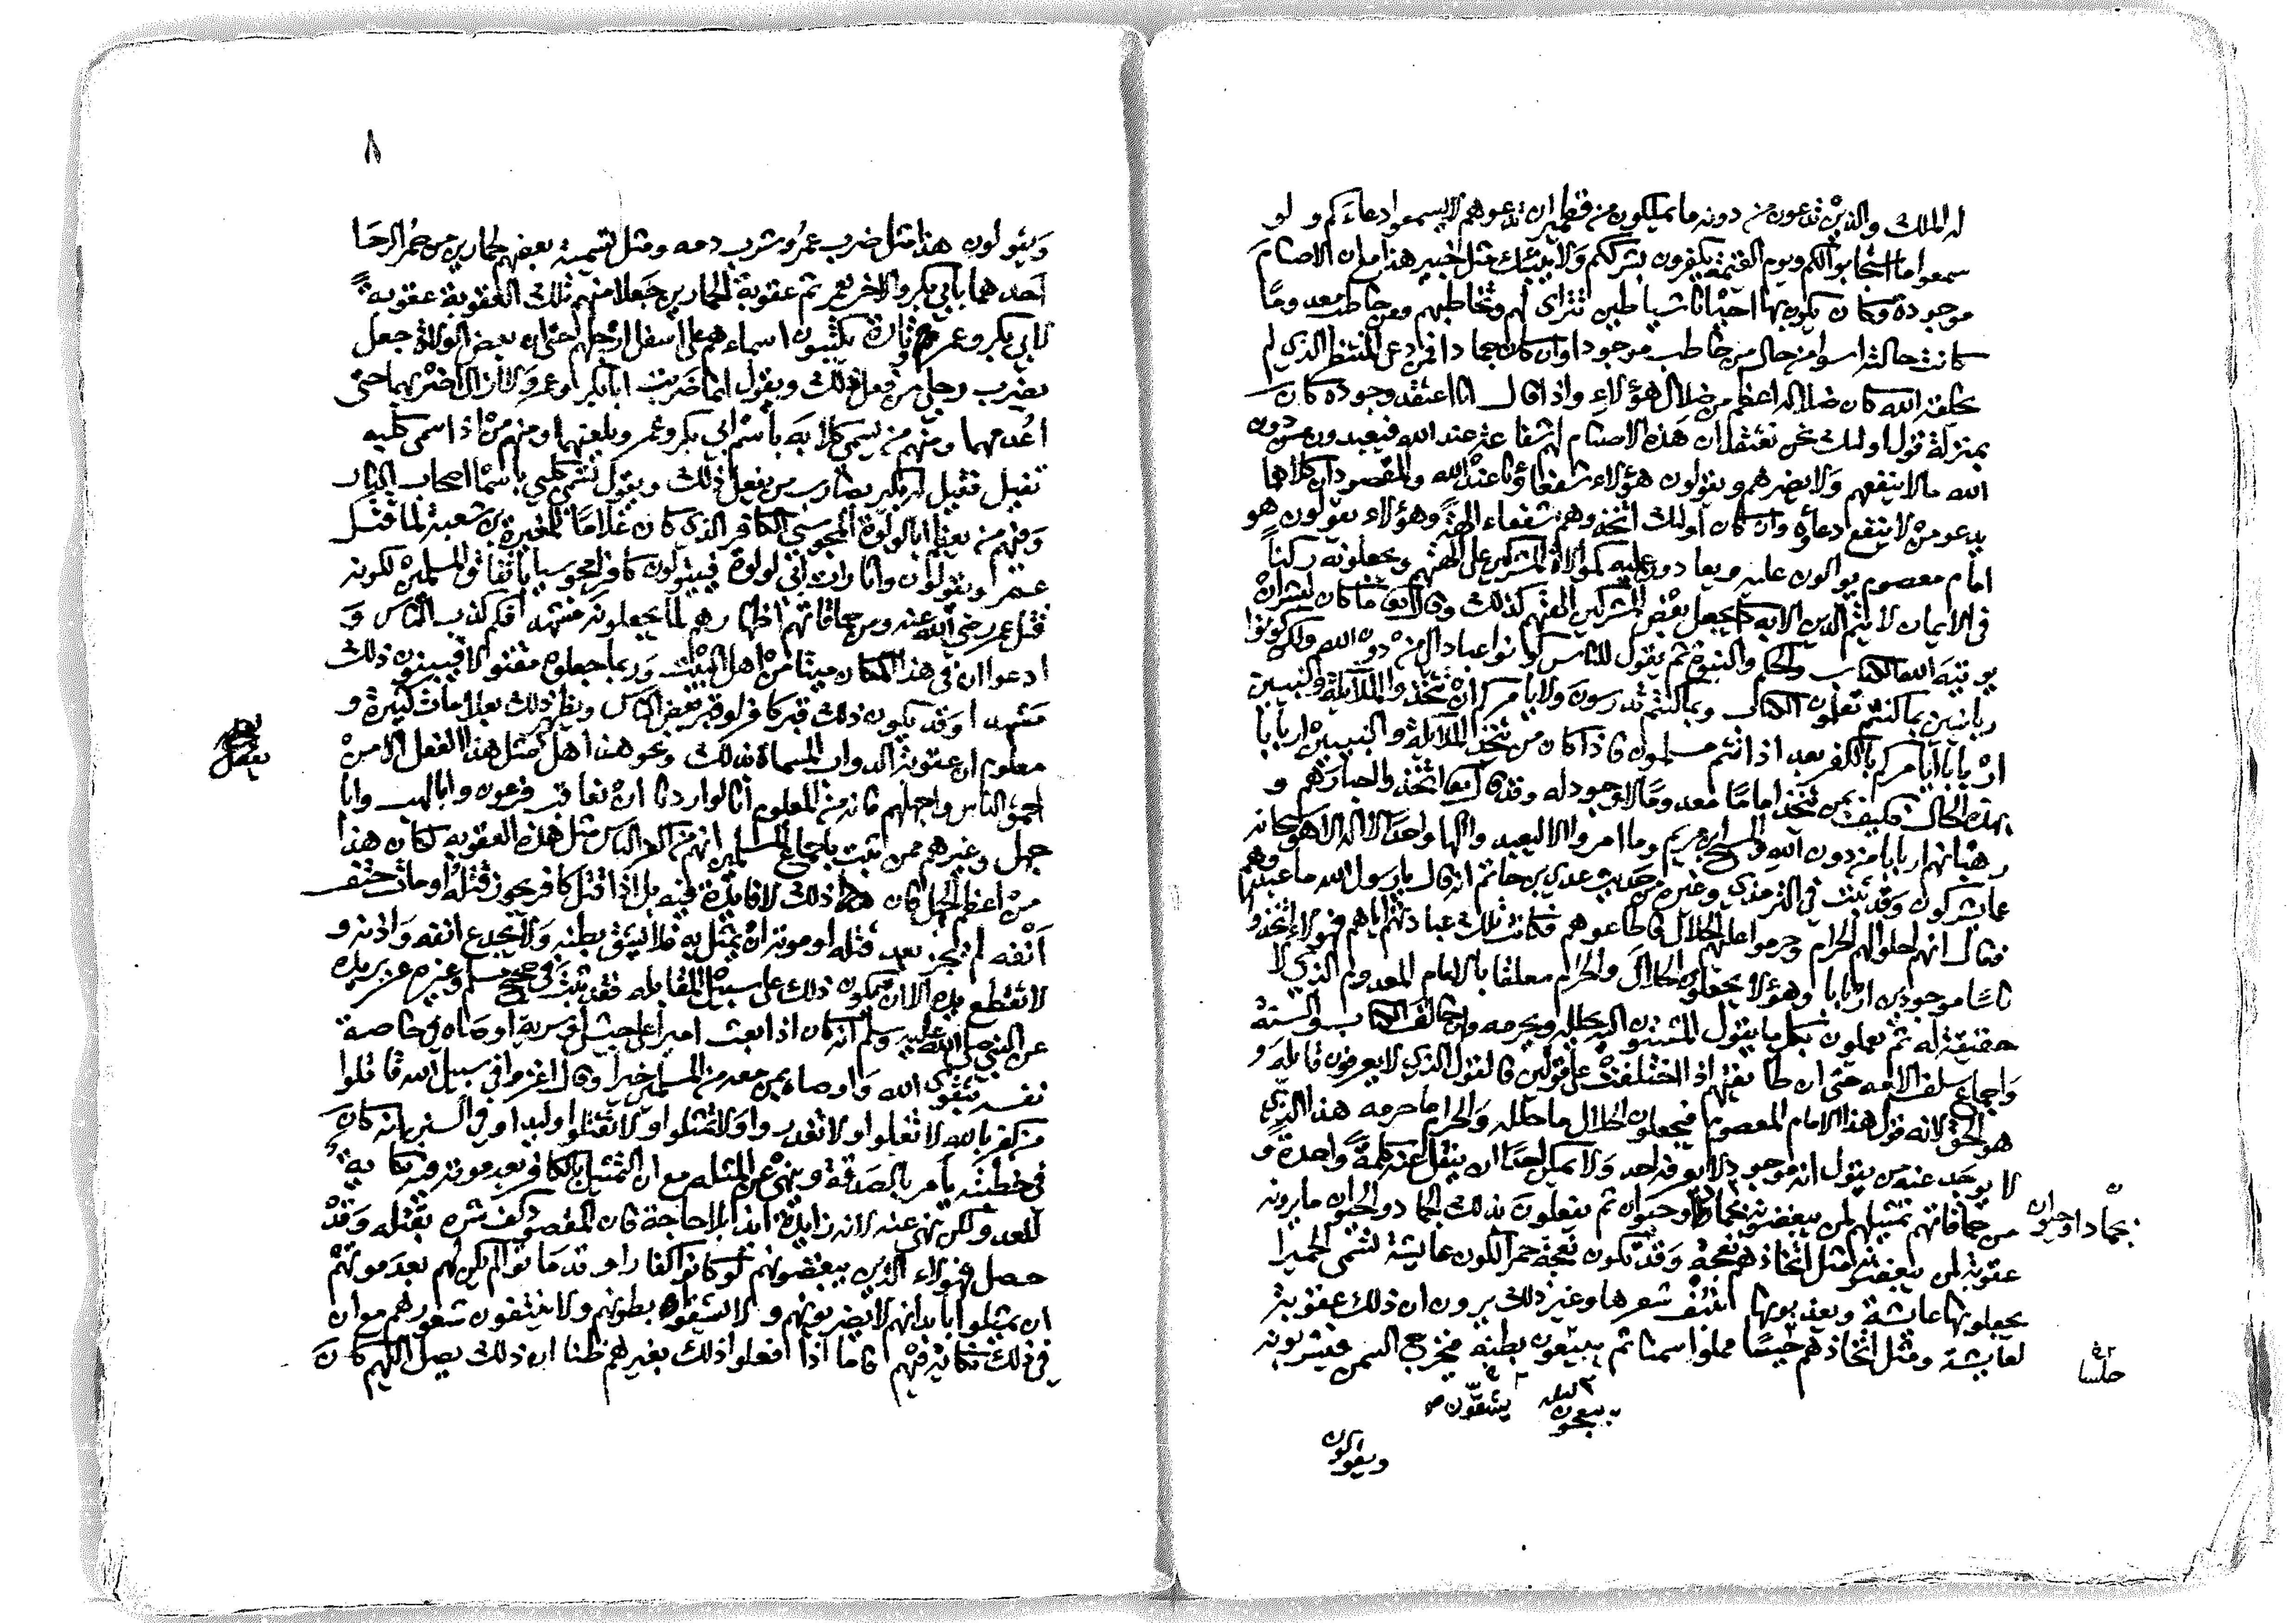 له الملك والذين تدعون من دونه ما يملكون من قطمير ان تدعوهم لا يسمعوا دعاءكم ولو
سمعوا ما استجابوا لكم ويوم القيمة يكفرون بشرككم ولا ينبئك مثل خبير هذا مع ان الاصنام
موجودة وكان يكون بها احيانا شياطين تتراى لهم وتخاطبهم ومن خاطب معدوما
كانت حالته اسوا من حال من خاطب موجودا وان كان جمادا فمن دعى المنتظر الذي لم
يخلقه الله كان ضلاله اعظم من ضلال هؤلاء واذا قال انا اعتقد وجوده كان
بمنزلة قول اولئك نحن نعتقد ان هذه الاصنام لها شفاعة عند الله فيعبدون من دون
الله ما لا ينفعهم ولا يضرهم ويقولون هؤلاء شفعاؤنا عند الله والمقصود ان كلاهما
يدعو من لا ينفع دعاؤه وان كان اولئك اتخذوهم شفعاء الهة وهؤلاء يقولون هو
امام معصوم يوالون عليه ويعادون عليه كموالاة المشركين على الهتهم ويجعلونه ركنا
في الايمان لا يتم الدين الا به كما يجعل بعض المشركين الهتهم كذلك وقال تعالى ما كان لبشر ان
يوتيه الله الكتاب والحكم والنبوة ثم يقول للناس كونوا عبادا لي من دون الله ولكن كونوا
ربانيين بما كنتم تعلمون الكتاب وبما كنتم تدرسون ولا يامركم ان تتخذوا الملايكة والنبيين
اربابا ايامركم بالكفر بعد اذ انتم مسلمون فاذا كان من يتخذ الملايكة والنبيين اربابا
بهذه الحال فكيف بمن يتخذ اماما معدوما لا وجود له وقد قال تعالى اتخذوا احبارهم و
رهبانهم اربابا من دون الله والمسيح ابن مريم وما امروا الا ليعبدوا الها واحدا لا اله الا هو سبحانه
عما يشركون وقد ثبت في الترمذي وغيره من حديث عدي بن حاتم انه قال يا رسول الله ما عبدوهم
فقال انهم احلوا لهم الحرام وحرموا عليهم الحلال فاطاعوهم فكانت تلك عبادتهم اياهم فهؤلاء اتخذوا
ناسا موجودين اربابا وهؤلاء يجعلون الحلال والحرام معلقا بالامام المعدوم الذي لا
حقيقة له ثم يعملون بكل ما يقول المثبتون انه يحلله ويحرمه وان خالف الكتاب والسنة
واجماع سلف الامه حتى ان طايفتهم اذا اختلفت على قولين فالقول الذي لا يعرفون قايله و
هو الحق لانه قول هذا الامام المعصوم فيجعلون الحلال ما حلله والحرام ما حرمه هذا الذي
لا يوجد عند من يقول انه موجود لا يعرفه احد ولا يمكن احدا ان ينقل عنه كلمة واحدة و
من حماقاتهم تمثيلهم لمن يبغضونه بجماد او حيوان ثم يفعلون بذلك الجماد والحيوان ما يرونه
عقوبة لمن يبغضونه مثل اتخاذهم نعجة وقد تكون نعجة حمرا لكون عايشة تسمى الحميرا
يجعلونها عايشة ويعذبونها بنتف شعرها وغير ذلك يرون ان ذلك عقوبة
لعايشة ومثل اتخاذهم حيسا مملوا سمنا ثم يبعجون بطنه فيخرج السمن فيشربونه
بجماد او حيوان
حلسا
يبعجون
يشقون
ويقولون
٨
ويقولون هذا مثل ضرب عمر وشرب دمه ومثل تسمية بعضهم لحمارين من حمر الرحا
احدهما بابي بكر والاخر بعمر ثم عقوبة الحمارين جعلا منهم تلك العقوبة عقوبة
لابي بكر وعمر وتارة يكتبون اسماءهم على اسفل ارجلهم حتى ان بعض الولاة جعل
يضرب رجلي من فعل ذلك ويقول انما ضربت ابا بكر وعمر ولا ازال اضربهما حتى
اعدمهما ومنهم من يسمي كلابه باسم ابي بكر وعمر ويلعنهما ومنهم من اذا سمى كلبه
فقيل له بكير يضارب من يفعل ذلك ويقول تسمي كلبي باسما اصحاب النار
ومنهم من يعظم ابا لولوة المجوسي الكافر الذي كان غلاما للمغيرة بن شعبة لما قتل
عمر ويقولون واثارات ابي لولوة فيتولون كافرا مجوسيا باتفاق المسلمين لكونه
قتل عمر رضي الله عنه ومن حماقاتهم اظهارهم لما يجعلونه مشهدا فكم كذبوا الناس و
ادعوا ان في هذا المكان ميتا من اهل البيت وربما جعلوه مقتولا فيبنون ذلك
مشهدا وقد يكون ذلك قبر كافر او قبر بعض الناس ويظهر ذلك بعلامات كثيرة و
معلوم ان عقوبة الدواب المسماة بذلك ونحو هذا هل مثل هذا الفعل الا من
احمق الناس واجهلهم فانه من المعلوم انا لو اردنا ان نعاقب فرعون وابا لهب وابا
جهل وغيرهم ممن ثبت باجماع المسلمين انهم من اكفر الناس مثل هذه العقوبه لكان هذا
من اعظم الجهل لان ذلك لا فايدة فيه بل اذا قتل كافر يجوز قتله او مات حتف
انفه لم يجز بعد قتله او موته ان يمثل به فلا يشق بطنه ولا يجدع انفه واذنه و
لا تقطع يده الا ان يكون ذلك على سبيل المقابله فقد ثبت في صحيح مسلم وغيره عن بريدة
عن النبي صلى الله عليه وسلم انه كان اذا بعث اميرا على جيش او سرية اوصاه في خاصة
نفسه بتقوى الله واوصاه بمن معه من المسلمين خيرا وقال اغزوا في سبيل الله قاتلوا
من كفر بالله لا تغلوا ولا تغدروا ولا تمثلوا ولا تقتلوا وليدا وفي السنن انه كان
في خطبته يامر بالصدقة وينهى عن المثله مع ان التمثيل بالكافر بعد موته فيه نكاية
للعدو ولكن نهى عنه لانه زيادة ايذا بلا حاجة فان المقصود كف شره بقتله وقد
حصل فهؤلاء الذين يبغضونهم لو كانوا كفارا وقد ماتوا لم يكن لهم بعد موتهم
ان يمثلوا بابدانهم لا يضربونهم ولا يشقون بطونهم ولا ينتفون شعورهم مع ان
في ذلك نكاية فيهم فاما اذا فعلوا ذلك بغيرهم ظنا ان ذلك يصل اليهم كان